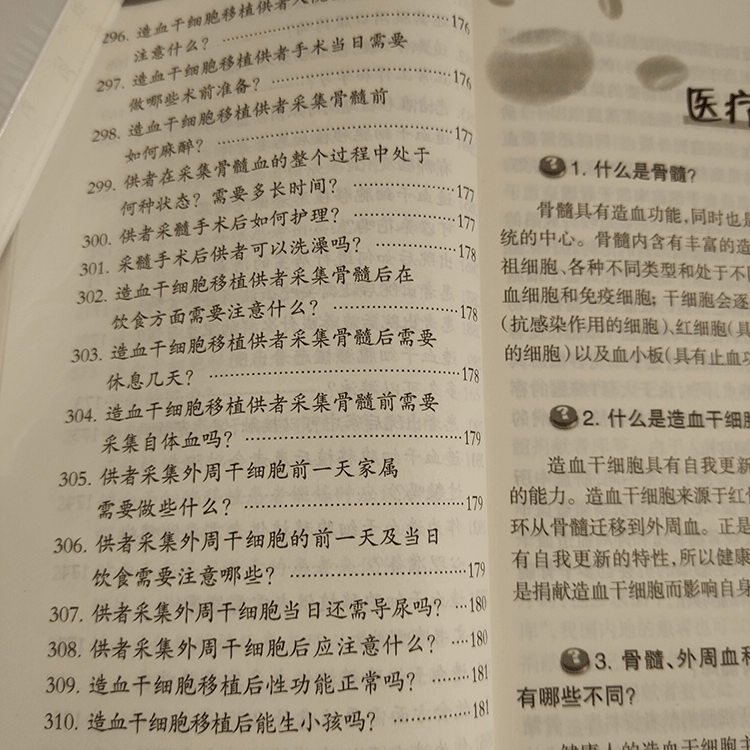 296. 造血干细胞移植供者入院
注意什么? 176
297. 造血干细胞移植供者手术当日需要
做哪些术前准备? 176
298. 造血干细胞移植供者采集骨髓前
如何麻醉? 177
299. 供者在采集骨髓血的整个过程中处于
何种状态? 需要多长时间? 177
300. 供者采髓手术后如何护理? 177
301. 采髓手术后供者可以洗澡吗? 178
302. 造血干细胞移植供者采集骨髓后在
饮食方面需要注意什么? 178
303. 造血干细胞移植供者采集骨髓后需要
休息几天? 178
304. 造血干细胞移植供者采集骨髓前需要
采集自体血吗? 179
305. 供者采集外周干细胞前一天家属
需要做些什么? 179
306. 供者采集外周干细胞的前一天及当日
饮食需要注意哪些? 179
307. 供者采集外周干细胞当日还需导尿吗? 180
308. 供者采集外周干细胞后应注意什么? 180
309. 造血干细胞移植后性功能正常吗? 181
310. 造血干细胞移植后能生小孩吗? 181
医疗
1. 什么是骨髓?
骨髓具有造血功能,同时也是
统的中心。骨髓内含有丰富的造
祖细胞、各种不同类型和处于不同
血细胞和免疫细胞; 干细胞会逐
(抗感染作用的细胞)、红细胞(具
的细胞)以及血小板(具有止血功
2. 什么是造血干细胞
造血干细胞具有自我更新
的能力。造血干细胞来源于红骨
环从骨髓迁移到外周血。正是
有自我更新的特性,所以健康
是捐献造血干细胞而影响自身
3. 骨髓、外周血和
有哪些不同?
健康人的造血干细胞主